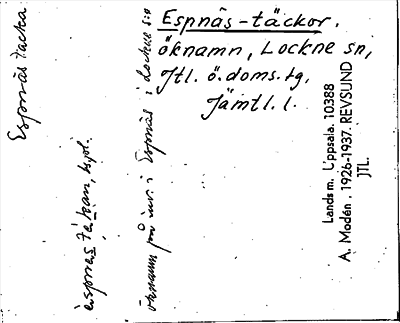 Espnäs-täckor.
öknamn, Lockne sn,
Jtl. ö. doms. sg.
Jämtl. l.
Espnäs täcka
èspnas tákan, npl.
öknamn på inv. i Espnäs i Lockne sn
Landsm. Uppsala. 10388
A. Modén. 1926-1937. REVSUND
JTL.